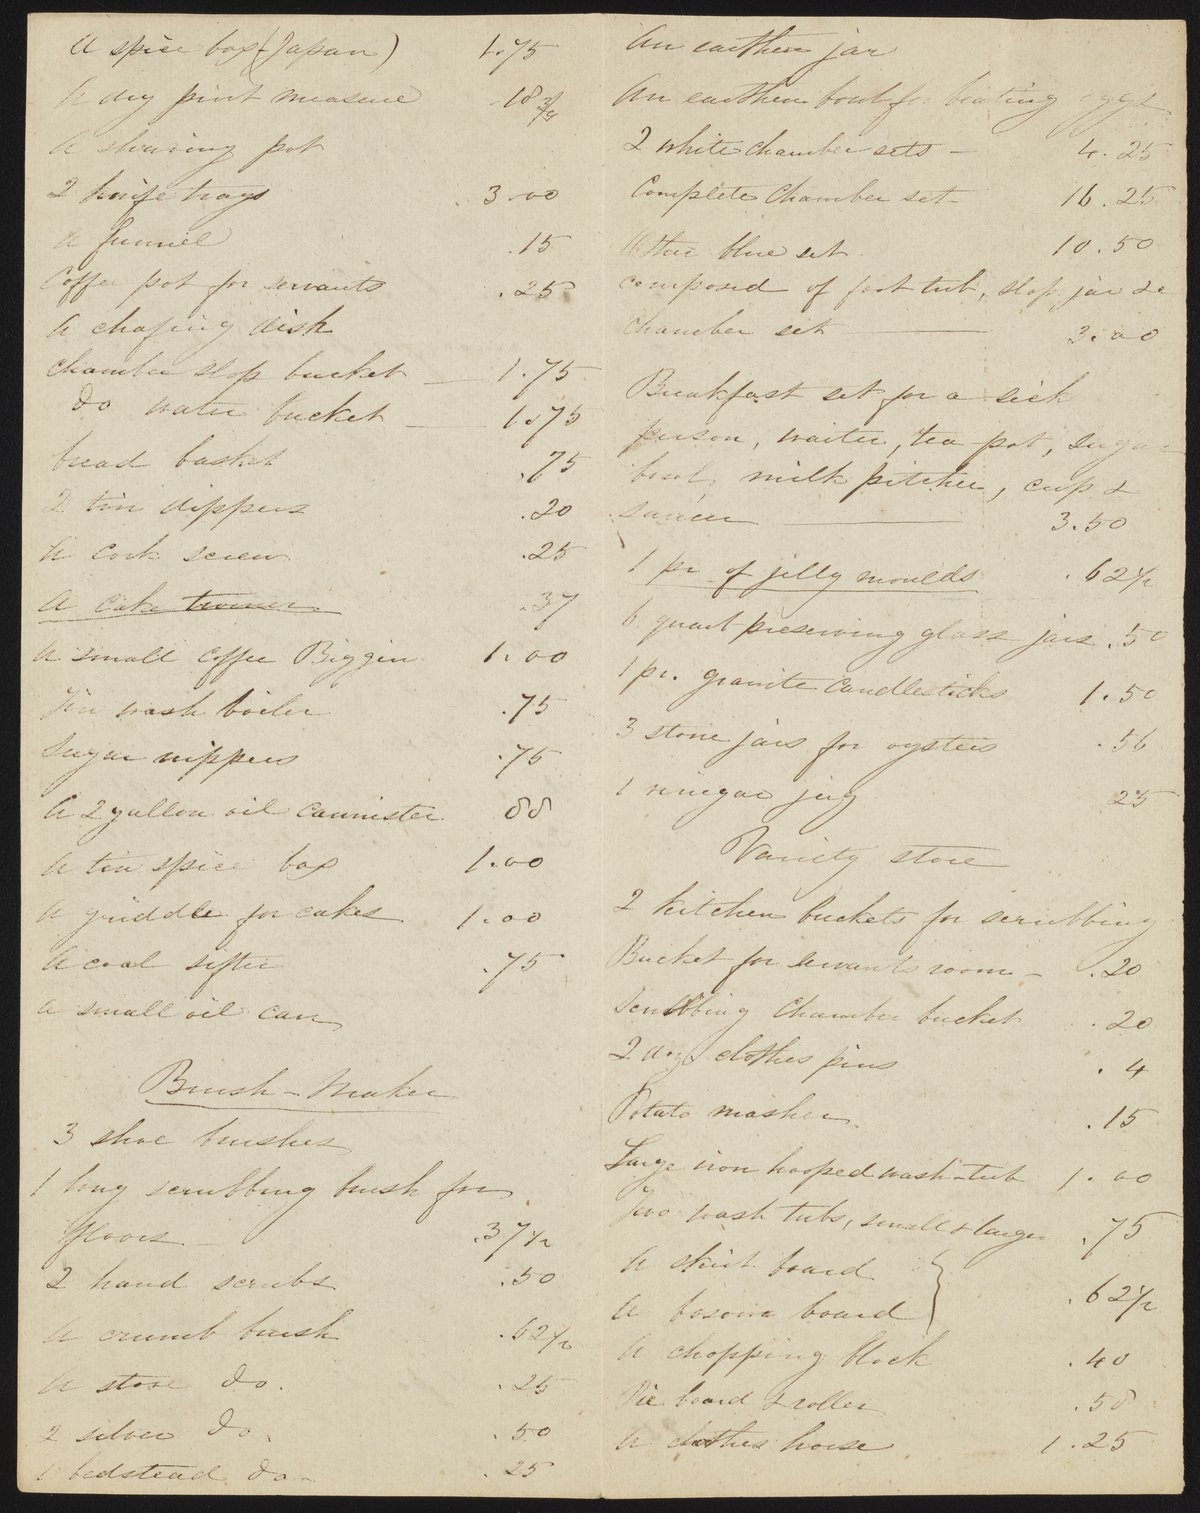 A spice box (Japan) 1.75
A dry pint measure .18 3/4
A shaving pot
2 knife trays 3.00
A funnel .15
Coffee pot for servants .25
A chafing dish
Chamber slop bucket — 1.75
Do water bucket — 1.75
bread basket .75
2 tin dippers .20
A cork screw .25
A cake turner .37
A small coffee Biggin 1.00
Tin wash boiler .75
Sugar nippers .75
A 2 gallon oil cannister 88
A tin spice box 1.00
A griddle for cakes 1.00
A coal sifter .75
A small oil can
Brush-Maker
3 shoe brushes
1 long scrubbing brush for
floors .37 1/2
2 hand scrubs .50
A crumb brush .62 1/2
A stove do. .25
2 silver do. .50
1 bedstead do - .25
An earthen jar
An earthen bowl for beating eggs
2 white chamber sets - 4.25
Complete Chamber set - 16.25
blue set 10.50
composed of foot tub, slop jar &c
chamber set — 3.00
Breakfast set for a sick
person, waiter, tea pot, sugar
bowl, milk pitcher, cup &
saucer — 3.50
1 pr of jelly moulds .62 1/2
6 quart preserving glass jars .50
1 pr. granite candlesticks 1.50
3 stone jars for oysters .56
1 vinegar jug 25
Variety store
2 kitchen buckets for scrubbing
Bucket for servants room - .20
Scrubbing Chamber bucket .20
2 doz clothes pins .4
Potato masher .15
Large iron hooped wash-tub 1.00
Two wash tubs, small & larger .75
A skirt board
A bosom board } .62 1/2
A chopping block .40
Pie board & roller .50
A clothes horse 1.25